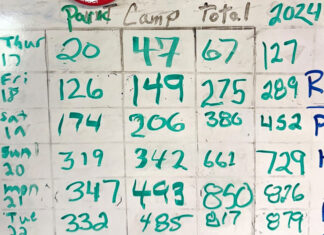 Point Camp Total 2024
Thur 20 47 67 127
17
Fri 126 149 275 289 R
18
Sat 174 206 386 452
19
Sun 319 342 661 729
20
Mon 347 493 850 876
21
Tue 332 485 817 879
22